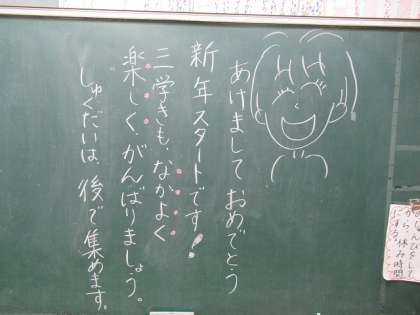 あけまして おめでとう
新年スタートです！
三学きも、なかよく
楽しく、がんばりましょう。
しゅくだいは、後で集めます。